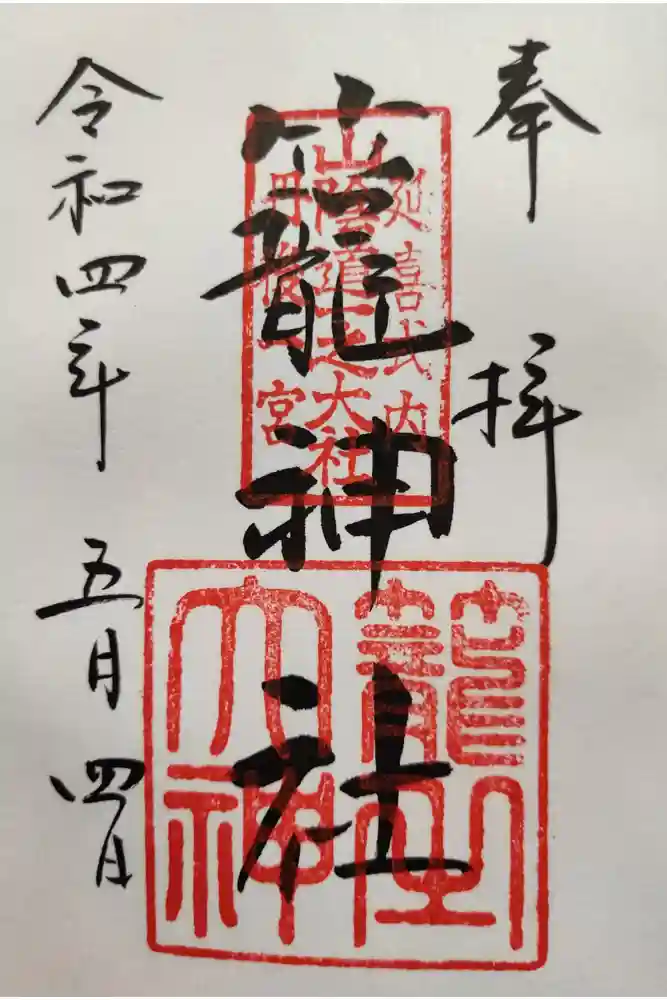 奉拝
延喜式内
山陰道一之大社
丹後一宮
籠神社
大神
令和四年五月四日